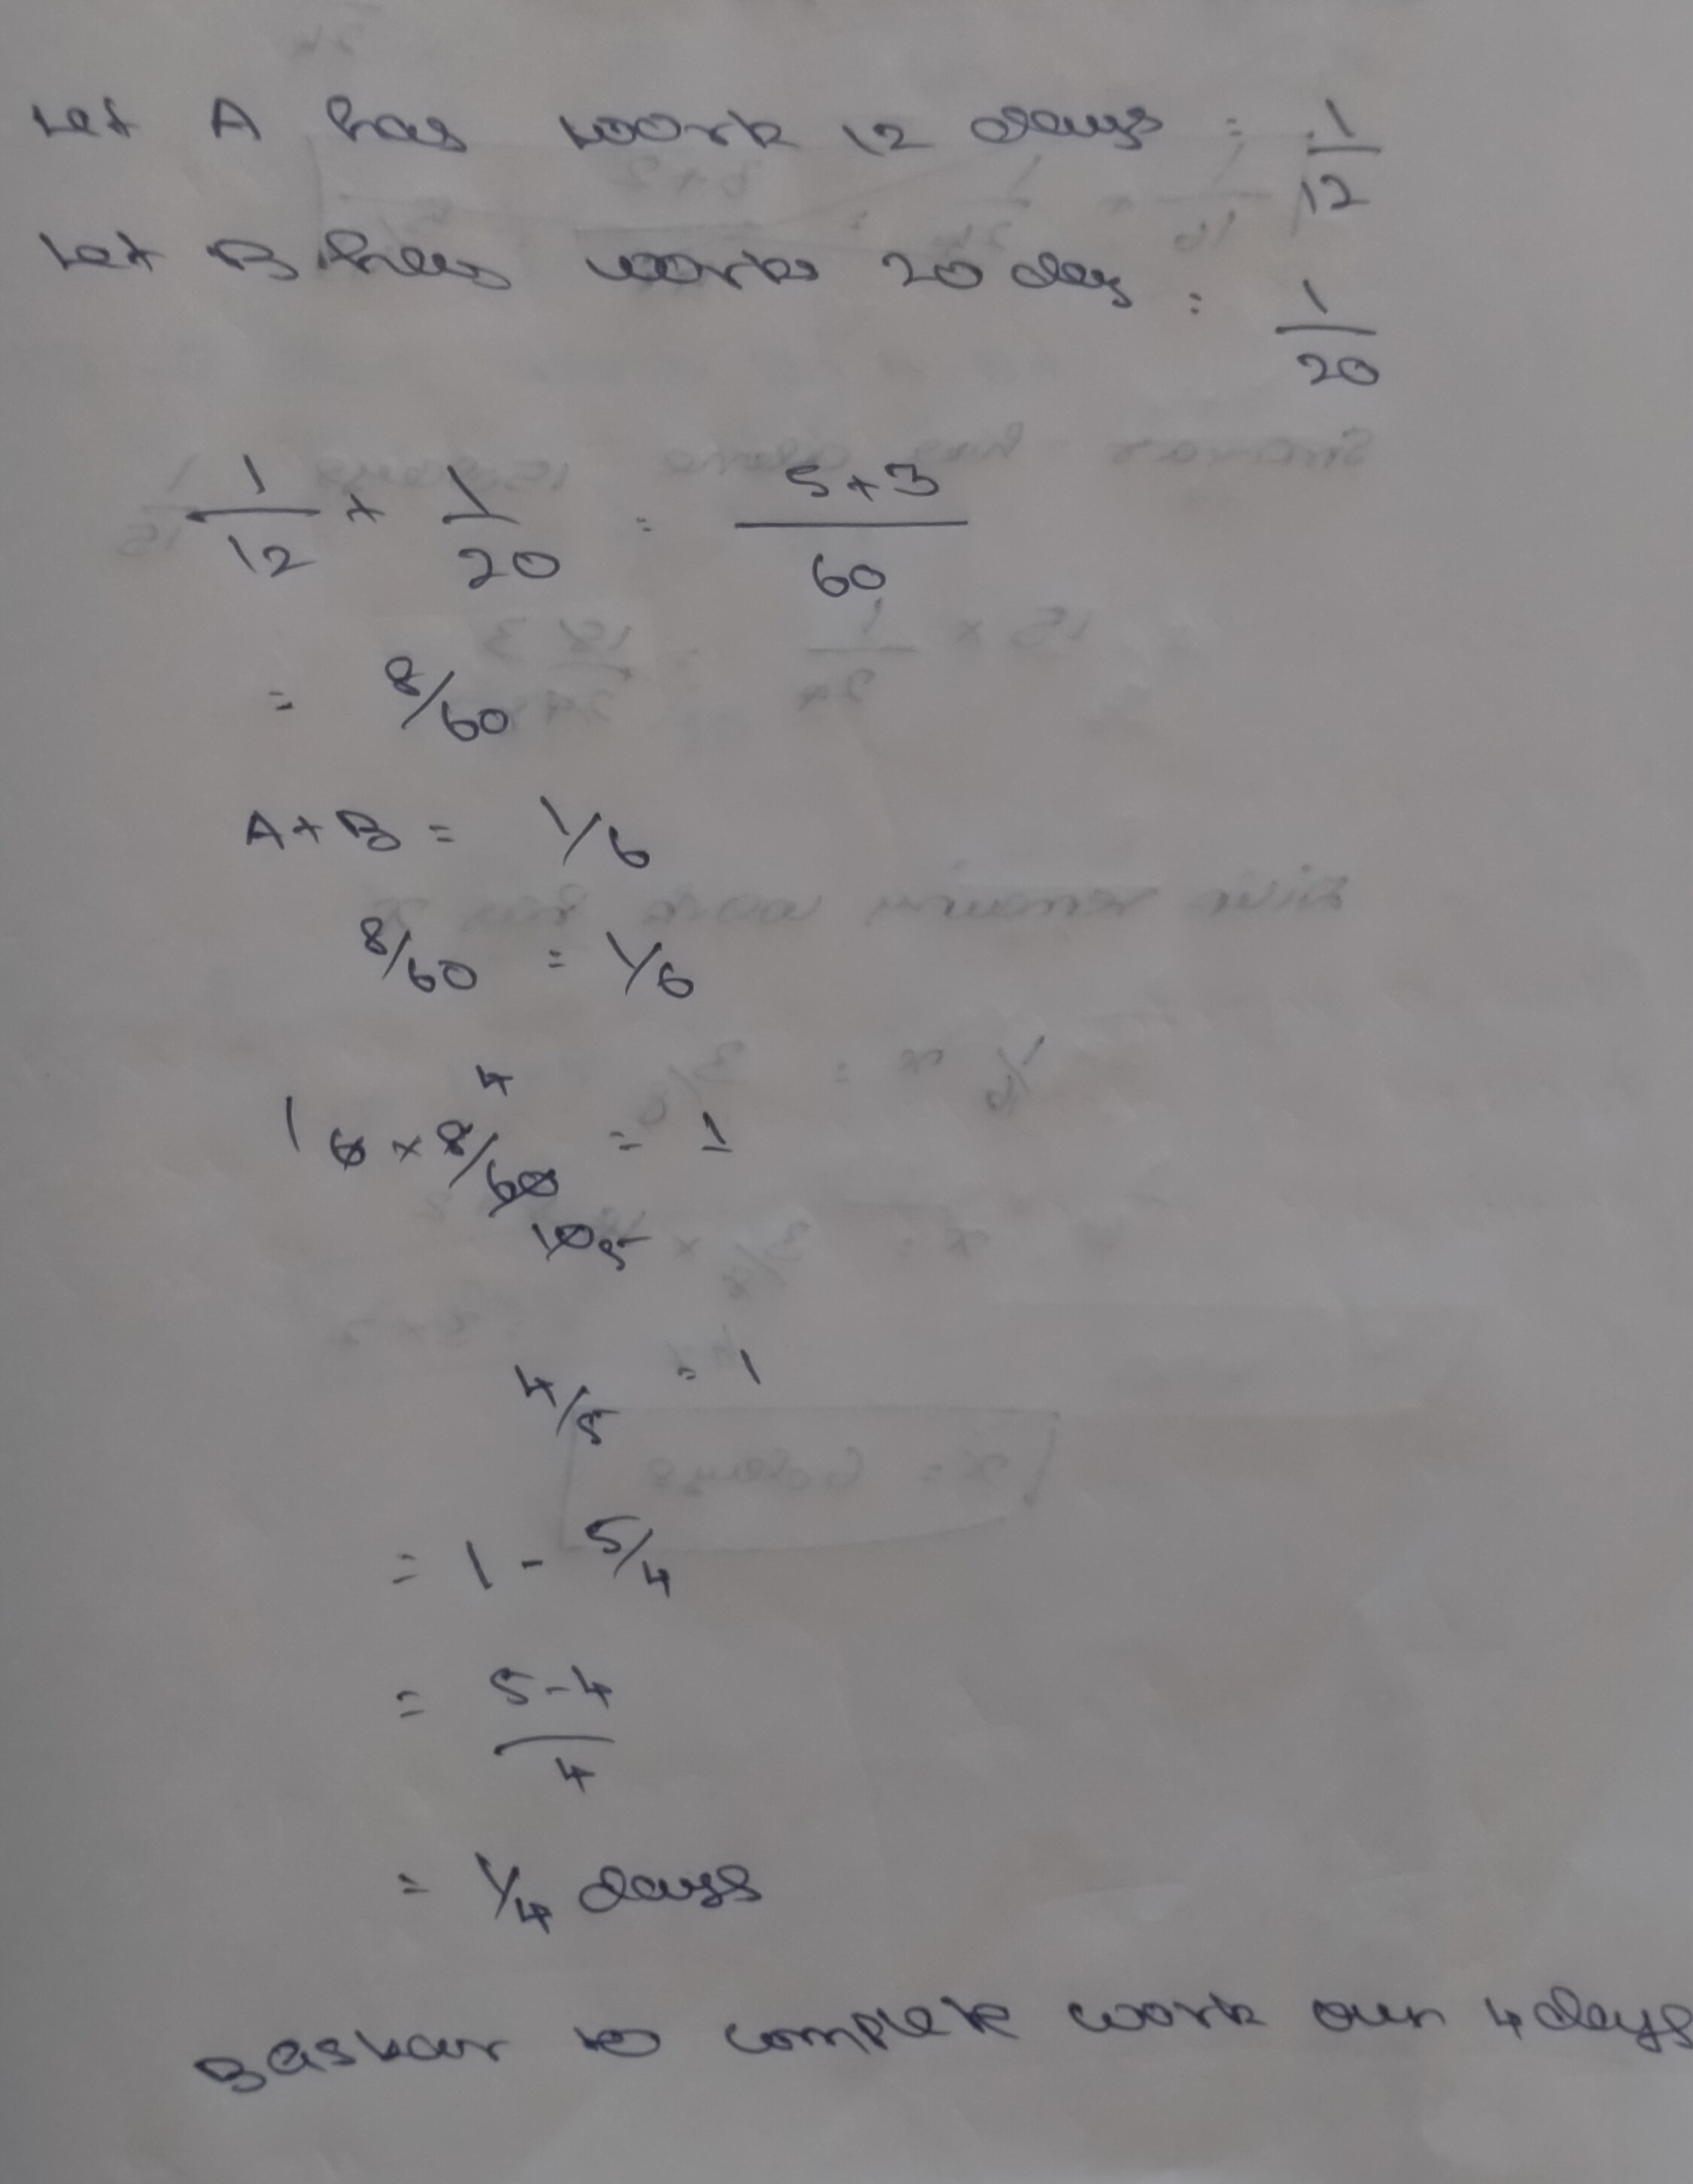 Let A has work 12 days = 1/12
Let B has works 20 day : 1/20
1/12 + 1/20 = 5+3/60
= 8/60
A+B = 1/6
8/60 = 1/6
1 6 x 8/60 = 1
4
10 5
4/5 = 1
= 1 - 5/4
= 5-4/4
= 1/4 days
Baskar to complete work own 4 days